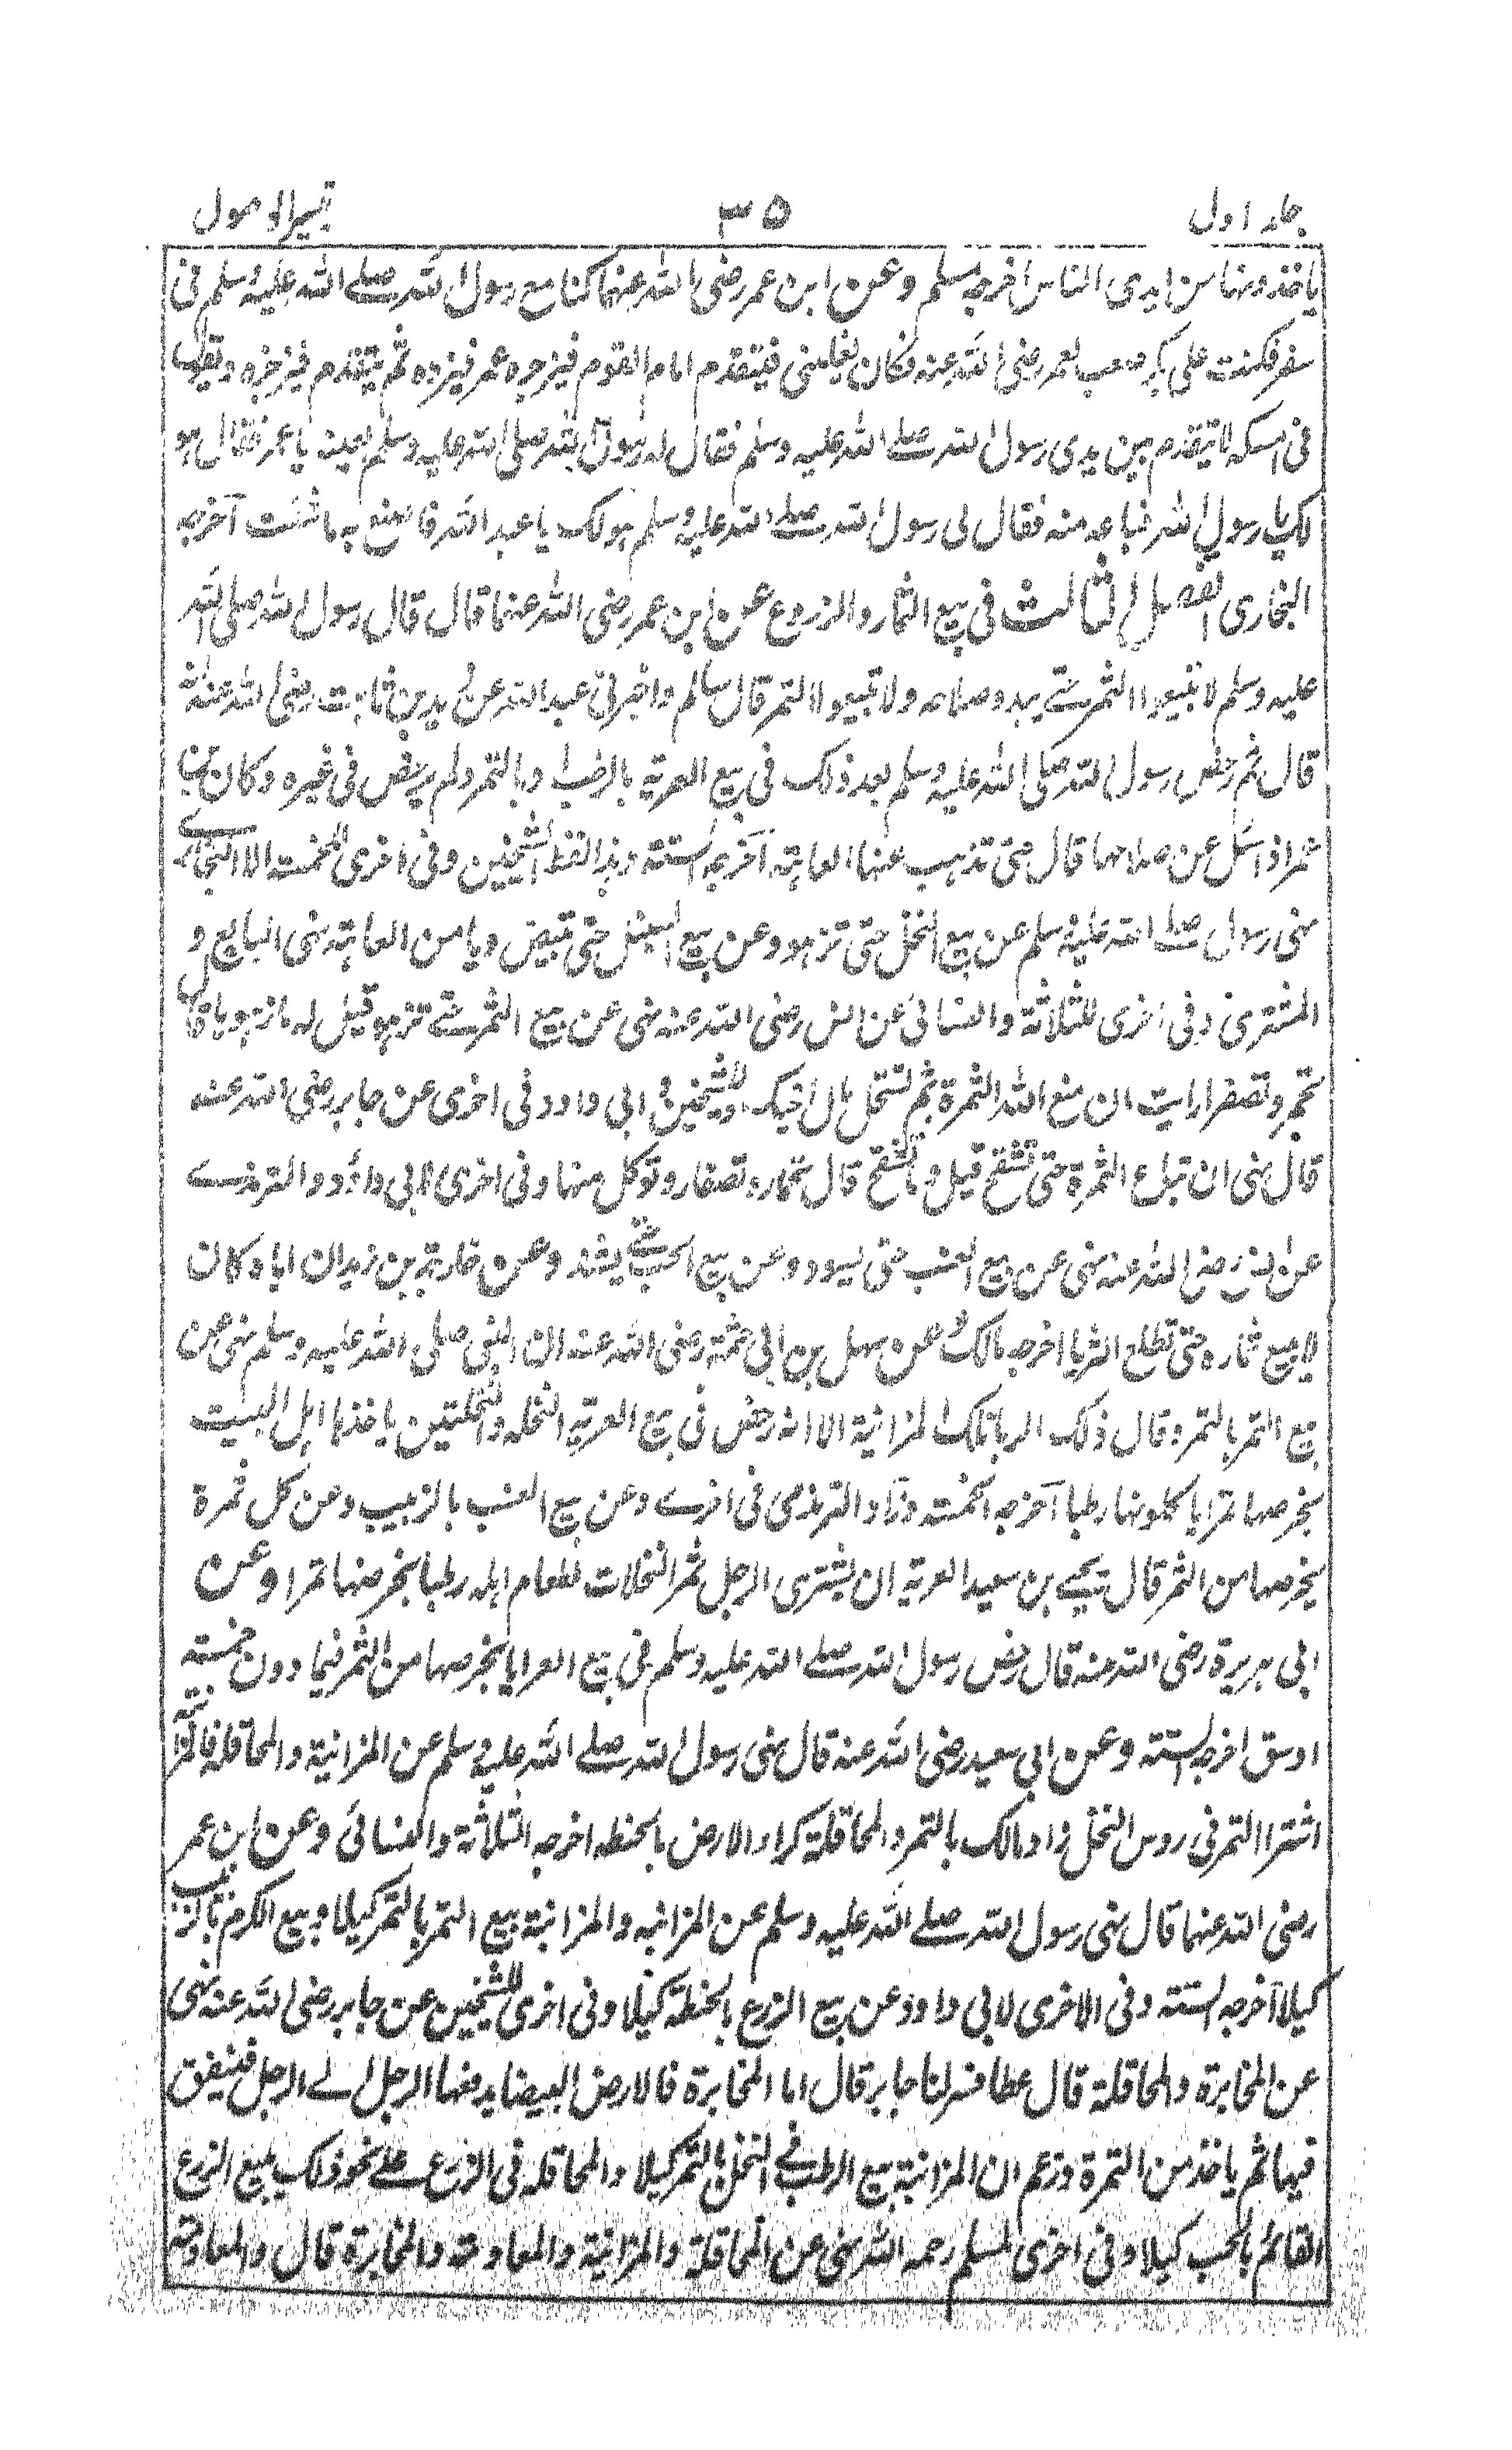 جلد اول ۳۵ تيسير الوصول
ياخذونها من ايدى الناس اخرجه مسلم وعن ابن عمر رضى الله عنهما كنا مع رسول الله صلے الله عليه وسلم فى
سفر فكنت على بكر صعب لعمر رضى الله عنه فكان يغلبنى فيتقدم امام القوم فيزجره عمر فيرده ثم يتقدم فيزجره ويقول
لى امسكه لا يتقدم بين يدى رسول الله صلے الله عليه وسلم فقال له رسول الله صلى الله عليه وسلم بعينه يا عمر فقال هو
لك يا رسول الله فباعه منه فقال لى رسول الله صلے الله عليه وسلم هو لك يا عبد الله فاصنع به ما شئت آخرجه
البخارى الفصل الثالث فى بيع الثمار والزروع عن ابن عمر رضى الله عنهما قال قال رسول الله صلى الله
عليه وسلم لا تبيعوا الثمر حتے يبدو صلاحه ولا تبيعوا التمر قال سالم واخبرنى عبد الله عن زيد بن ثابت رضى الله عنه
قال ثم رخص رسول الله صلى الله عليه وسلم بعد ذلك فى بيع العرية بالرطب او بالتمر ولم يرخص فى غيره وكان ابن
عمر اذا سئل عن صلاحها قال حتى تذهب عنها العاهة آخرجه الستة وهذا لفظ الشيخين وفى اخرى للخمسة الا البخارے
نهى رسول الله صلے الله عليه وسلم عن بيع النخل حتى تزهو وعن بيع السنبل حتى تبيض ويامن العاهة نهى البايع و
المشترى وفى اخرى للثلاثة والنسائى عن انس رضى الله عنه نهى عن بيع الثمر حتے تزهو قيل له ما زهوها قال
تحمر وتصفر ارايت ان منع الله الثمرة بم تستحل مال اخيك وللشيخين و ابى داود فى اخرى عن جابر رضى الله عنه
قال نهى ان تباع الثمرة حتى تشقح قيل وما تشقح قال تحمار وتصفار وتوكل منها وفى اخرى لابى داؤد والترمذے
عن انس رضى الله عنه نهى عن بيع العنب حتى يسود وعن بيع الحب حتے يشتد وعن خارجة بن زيد ان اباه كان
لا يبيع ثماره حتى تطلع الثريا اخرجه مالك وعن سهل بن ابى حثمة رضى الله عنه ان النبى صلى الله عليه وسلم نهى عن
بيع الثمر بالتمر وقال ذلك الربا تلك المزابنة الا انه رخص فى بيع العرية النخله والنخلتين ياخذها اهل البيت
بخرصها تمرا ياكلونها رطبا آخرجه الخمسة وزاد الترمذى فى اخرے وعن بيع العنب بالزبيب وعن كل ثمرة
بخرصها من الثمر قال يحيے بن سعيد العرية ان يشترى الرجل ثمر النخلات لطعام اهله رطبا بخرصها تمرا وعن
ابى هريرة رضى الله عنه قال رخص رسول الله صلے الله عليه وسلم فى بيع العرايا بخرصها من الثمر فيما دون خمسة
اوسق اخرجه الستة وعن ابى سعيد رضى الله عنه قال نهى رسول الله صلے الله عليه وسلم عن المزابنة والمحاقله فالمزابنة
اشترا التمر فى روس النخل زاد مالك بالتمر والمحاقلة كراء الارض بالحنطه اخرجه الثلاثة والنسائى وعن ابن عمر
رضى الله عنهما قال نهى رسول الله صلے الله عليه وسلم عن المزابنه والمزابنة بيع الثمر بالتمر كيلا وبيع الكرم بالزبيب
كيلا آخرجه الستة وفى الاخرى لابى داود وعن بيع الزرع بالحنطة كيلا وفى اخرى للشيخين عن جابر رضى الله عنه نهى
عن المخابرة والمحاقلة قال عطا فسر لنا جابر قال اما المخابرة فالارض البيضا يدفعها الرجل الے الرجل فينفق
فيها ثم ياخذ من الثمرة وزعم ان المزابنة بيع الرطب فے النخل بالتمر كيلا والمحاقله فى الزرع علے نحو ذلك يبيع الزرع
القائم بالحب كيلا وفى اخرى لمسلم رحمه الله نهى عن المحاقلة والمزابنة والمعاومة والمخابرة قال والمعاومة